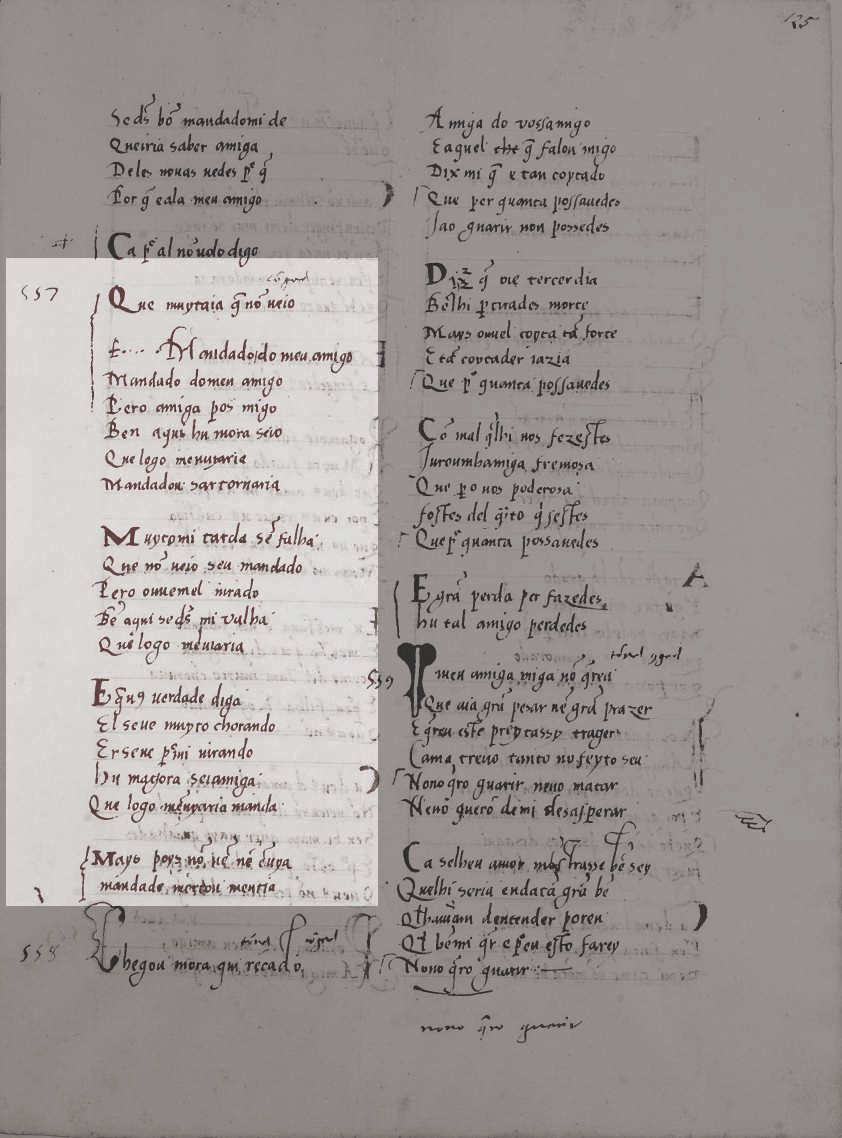 125
Seds̃ bõ mandadomi de
Queiria saber amiga
Deles nouas uedes p̃ q̃
Por q̃ eala meu amigo
Ca p̃ al nõ uolo digo
557
Que muytaia q̃ nõ ueio
Mandado do meu amigo
Mandado domeu amigo
Pero amiga pos migo
Ben aqui hu mora seio
Que logo menuyaria
Mandadou sartornaria
Muytomi tarda sẽ falha
Que nõ ueio seu mandado
Pero ouuemel iurado
Bẽ aqui seds̃ mi ualha
Que logo menuiaria
E q̃uꝯ uerdade diga
El seue muyto chorando
Er seue p̃ mi iurando
hu mahora seiamiga
Que logo menuyaria manda
Mays poys nõ uẽ nẽ enuya
mandade mortou mentia
558
Chegou mora qui recado
Amiga do uossamigo
Eaquel q̃ falou migo
Dix mi q̃ e tan coytado
Que per quanta possauedes
Jao guarir non possedes
Diz q̃ oie tercer dia
Bẽ lhi ꝑtirades morte
Mays ouuel coyta tã forte
E tã coytader iazia
Que p̃ quanta possauedes
Cõ mal q̃lhi uos fezestes
Juroumhamiga fremosa
Que ꝑo uos poderosa
fostes del q̃nto q̃sestes
Que p̃ quanta possauedes
E grã perda per fazedes
hu tal amigo perdedes
559
meu amiga miga nõ q̃reu
Que aia grã pesar nẽ grã prazer
E q̃reu este preytassy trager
Cama treuo tanto no feyto seu
Nono q̃ro guarir neno matar
Nenõ querõ demi desasperar
Ca selheu amor mostrasse bẽ sey
Quelhi seria endatã grã bẽ
dentender poren
bẽ mi q̃r e ꝑeu esto farey
Nono q̃ro guarir
nono q̃ro guarir